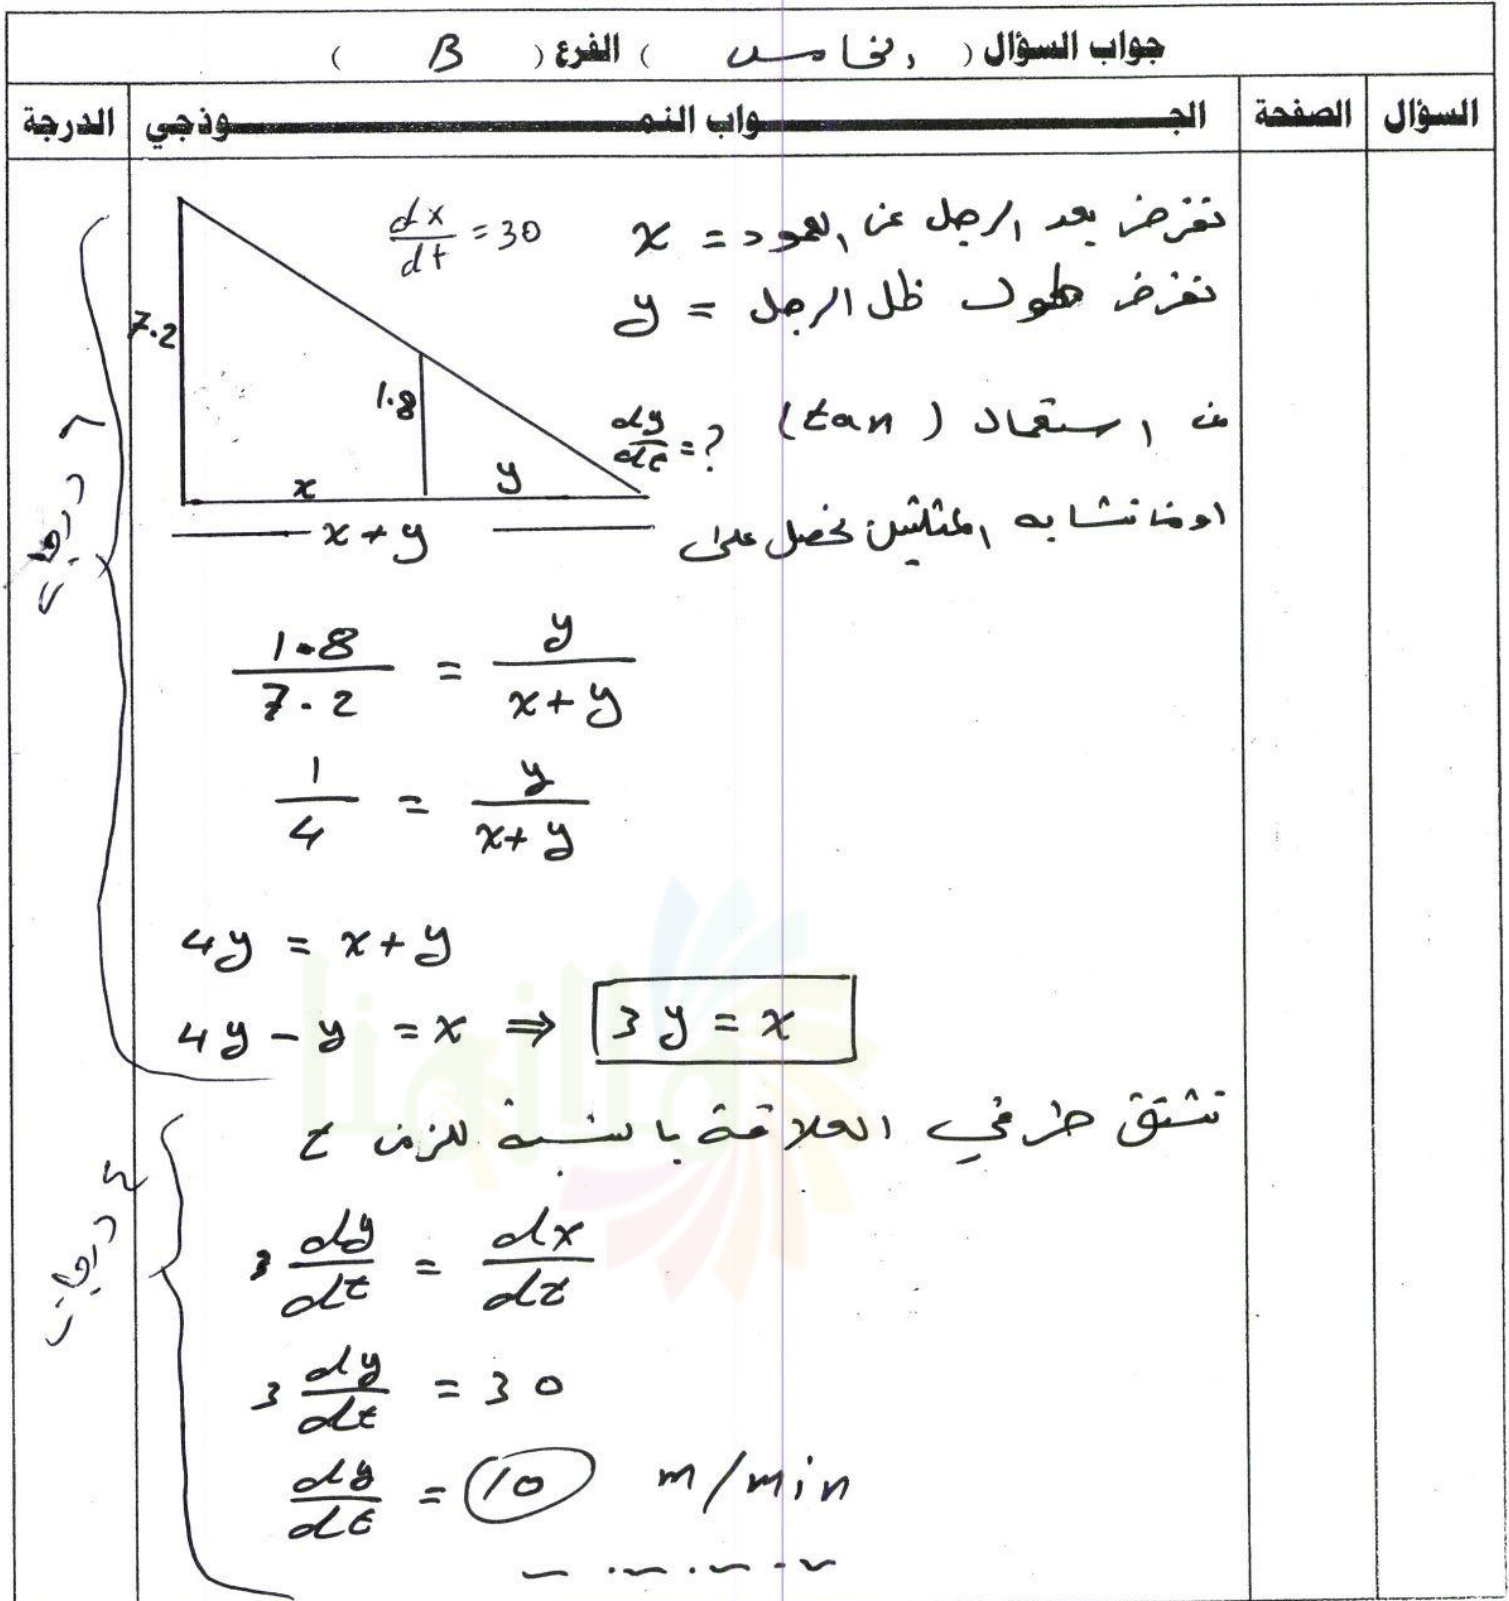 جواب السؤال ( الخامس ) الفرع ( B )
السؤال الصفحة الجـــواب النمـــوذجي الدرجة
نفرض بعد الرجل عن العمود = x
dx/dt = 30
نفرض طول ظل الرجل = y
7.2
1.8
x
y
x + y
من استعمال (tan)
dy/dt = ?
او من تشابه المثلثين نحصل على
1.8/7.2 = y/(x+y)
1/4 = y/(x+y)
4y = x + y
4y - y = x ⇒ 3y = x
نشتق طرفي العلاقة بالنسبة للزمن t
3 dy/dt = dx/dt
3 dy/dt = 30
dy/dt = 10 m/min
درجات
درجات